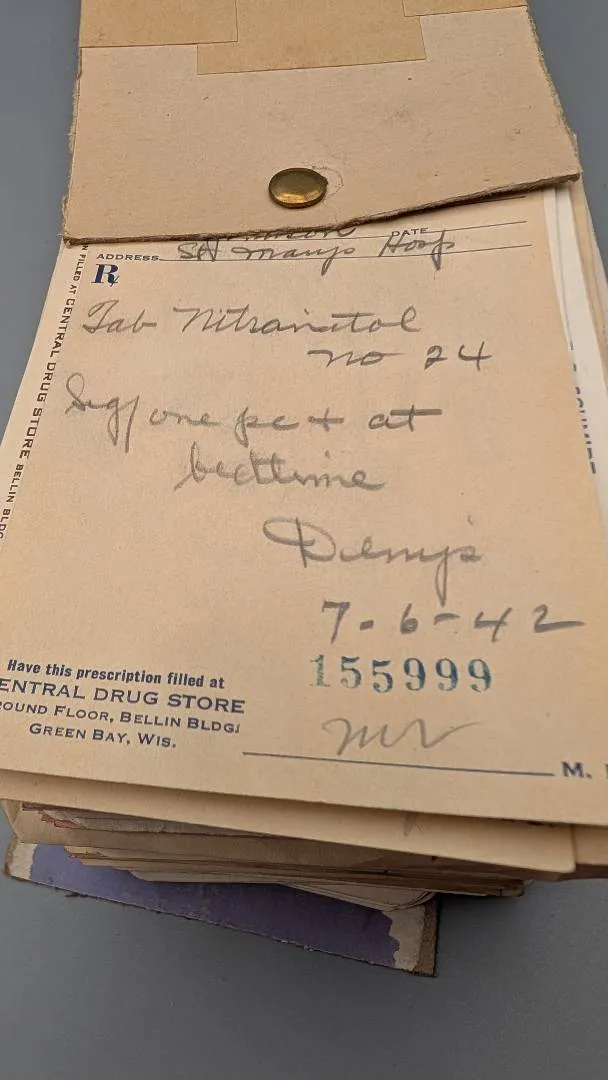 DATE
ADDRESS St Marys Hosp
Rx
Tab Nitranitol
no 24
Sig/ one pc + at
bedtime
7-6-42
155999
Have this prescription filled at
ENTRAL DRUG STORE
ROUND FLOOR, BELLIN BLDG.
GREEN BAY, WIS.
M.
N FILLED AT CENTRAL DRUG STORE BELLIN BLDG